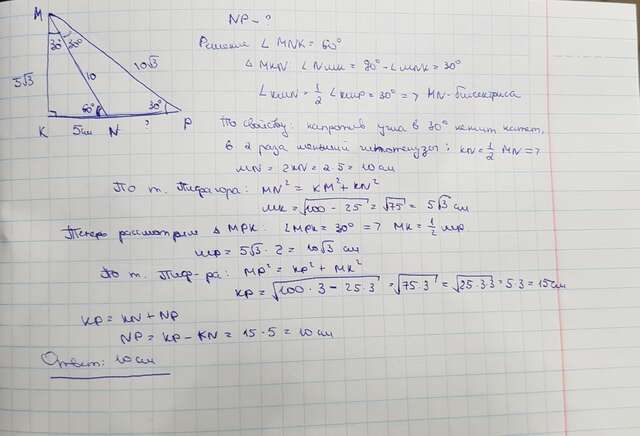 M
30° 30°
5√3
10
10√3
60°
30°
K 5см N ? P
NP - ?
Решение ∠MNK = 60°
△MKN: ∠NMK = 90° - ∠MNK = 30°
∠KMN = 1/2 ∠KMP = 30° => MN - биссектриса
По свойству: напротив угла в 30° лежит катет,
в 2 раза меньший гипотенузы: KN = 1/2 MN =>
MN = 2KN = 2·5 = 10 см
По т. Пифагора: MN² = KM² + KN²
MK = √100 - 25 = √75 = 5√3 см
Теперь рассмотрим △MPK: ∠MPK = 30° => MK = 1/2 MP
MP = 5√3 · 2 = 10√3 см
По т. Пиф-ра: MP² = KP² + MK²
KP = √100·3 - 25·3 = √75·3 = √25·3·3 = 5·3 = 15см
KP = KN + NP
NP = KP - KN = 15 - 5 = 10 см
Ответ: 10 см